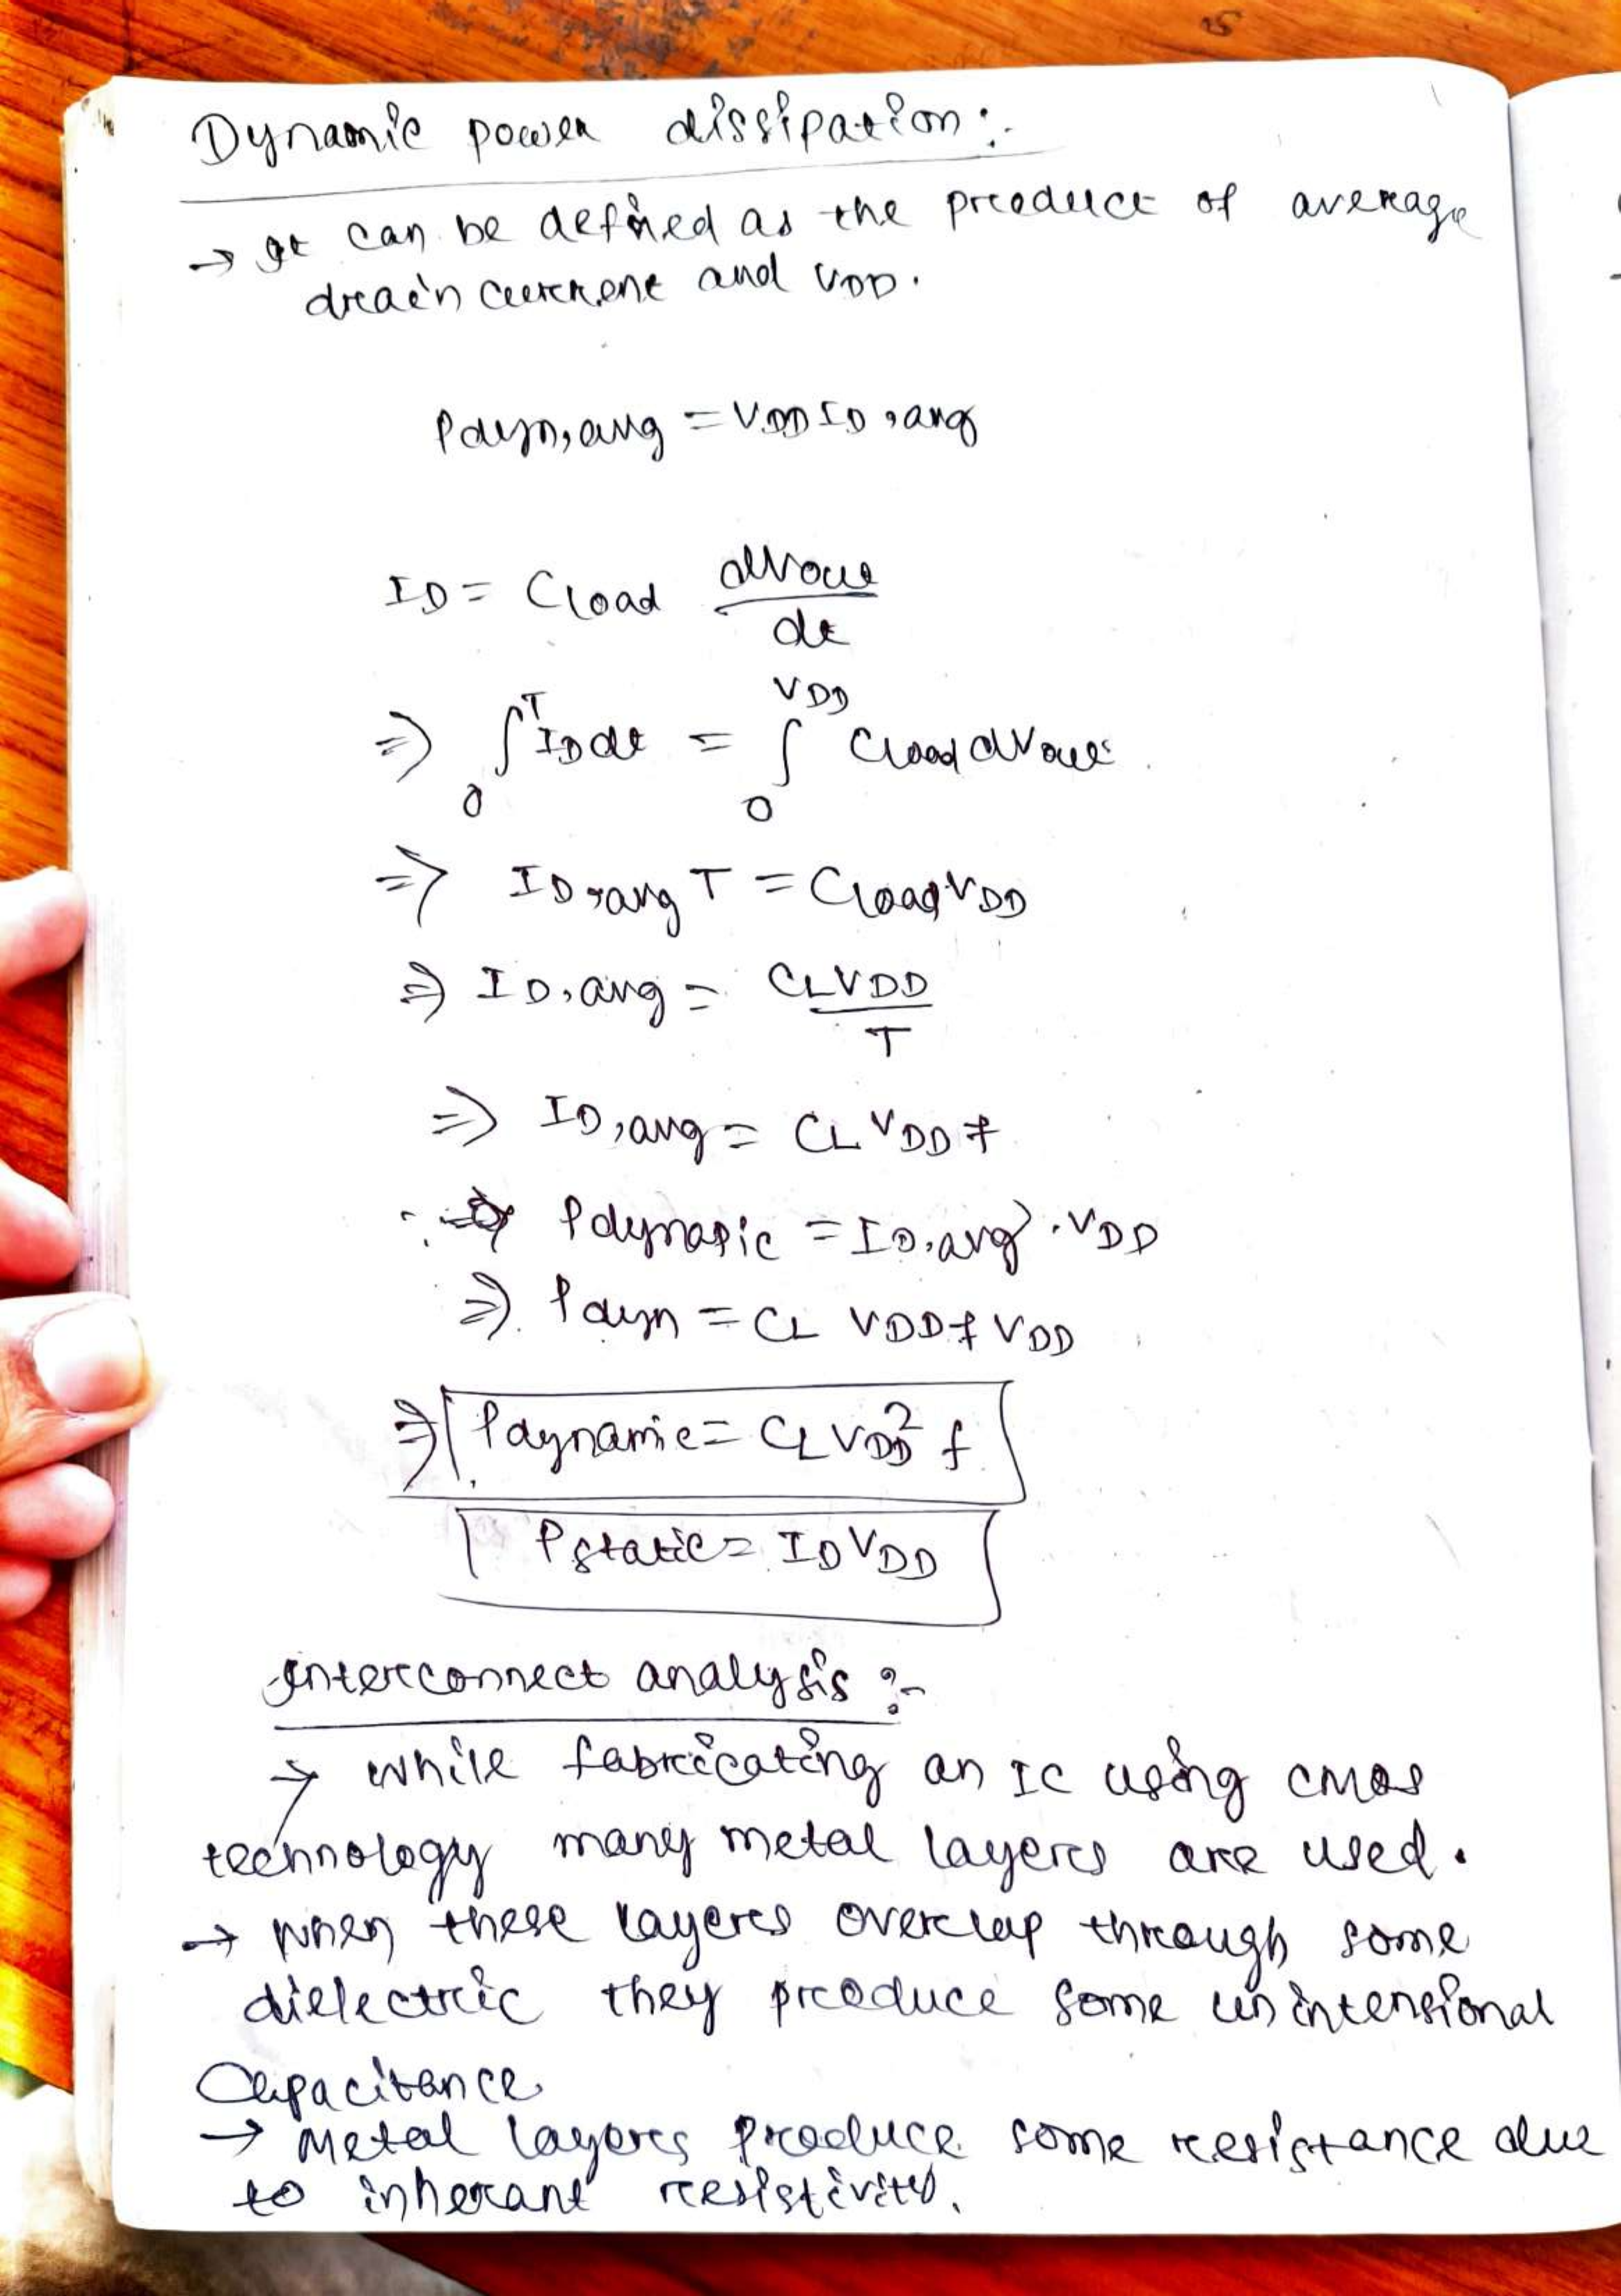 Dynamic power dissipation :-
→ It can be defined as the product of average
drain current and VDD.
Pdyn,avg = VDD ID,avg
ID = Cload dVout/dt
⇒ ∫₀ᵀ ID dt = ∫₀^VDD Cload dVout
⇒ ID,avg T = Cload VDD
⇒ ID,avg = CLVDD/T
⇒ ID,avg = CL VDD f
∴ ⇒ Pdynamic = ID,avg · VDD
⇒ Pdyn = CL VDD f VDD
⇒ Pdynamic = CLVDD² f
Pstatic = ID VDD
Interconnect analysis :-
→ While fabricating an IC using CMOS
technology many metal layers are used.
→ When these layers overlap through some
dielectric they produce some unintensional
Capacitance
→ Metal layers produce some resistance due
to inherant resistivity.